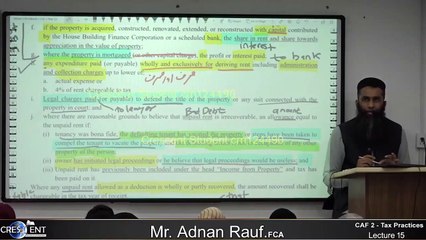 f. if the property is acquired, constructed, renovated, extended, or reconstructed with capital contributed
by the House Building Finance Corporation or a scheduled bank, the share in rent and share towards
appreciation in the value of property;
interest
where the property is mortgaged or other capital charges, the profit or interest paid
to bank
any expenditure paid (or payable) wholly and exclusively for deriving rent including administration
and collection charges up to lower of
a. actual expense or
b. 4% of rent chargeable to tax
i. Legal charges paid (or payable) to defend the title of the property or any suit connected with the
property in court; and
to lawyer
Bad Debts
amount
j. where there are reasonable grounds to believe that unpaid rent is irrecoverable, an allowance equal to the
unpaid rent if:
tenancy was bona fide, the defaulting tenant has vacated the property or steps have been taken to
compel the tenant to vacate the property and
other property of the person
(ii) owner has initiated legal proceedings or he believe that legal proceedings would be useless; and
(iii) Unpaid rent has previously been included under the head "Income from Property" and tax has
been paid on it
Where any unpaid rent allowed as a deduction is wholly or partly recovered, the amount recovered shall
be chargeable in the tax year of receipt.
CRESCENT
Mr. Adnan Rauf.FCA
CAF 2 - Tax Practices
Lecture 15